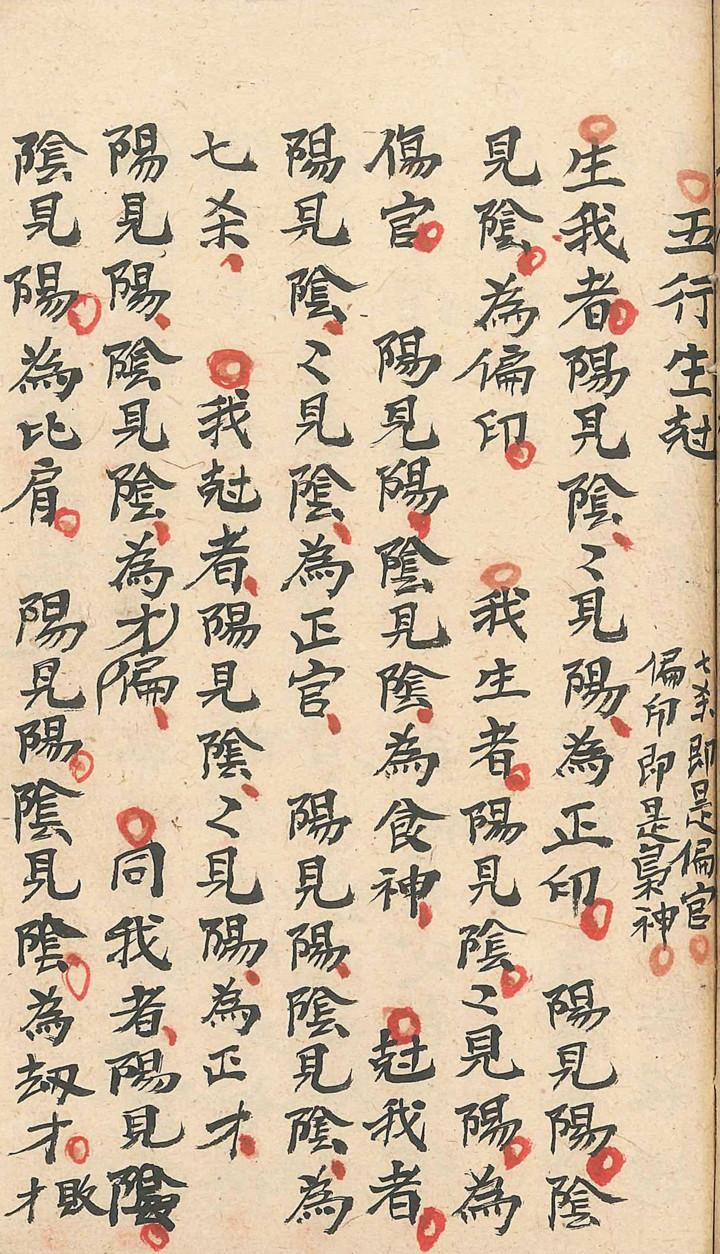 五行生尅
七杀即是偏官
偏印即是梟神
生我者陽見陰〻見陽為正印 陽見陽陰
見陰為偏印 我生者陽見陰〻見陽為
傷官 陽見陽陰見陰為食神 尅我者
陽見陰〻見陰為正官 陽見陽陰見陰為
七杀 我尅者陽見陰〻見陽為正才
陽見陽陰見陰為才偏 同我者陽見
陰見陽為比肩 陽見陽陰見陰為刼才 敗才